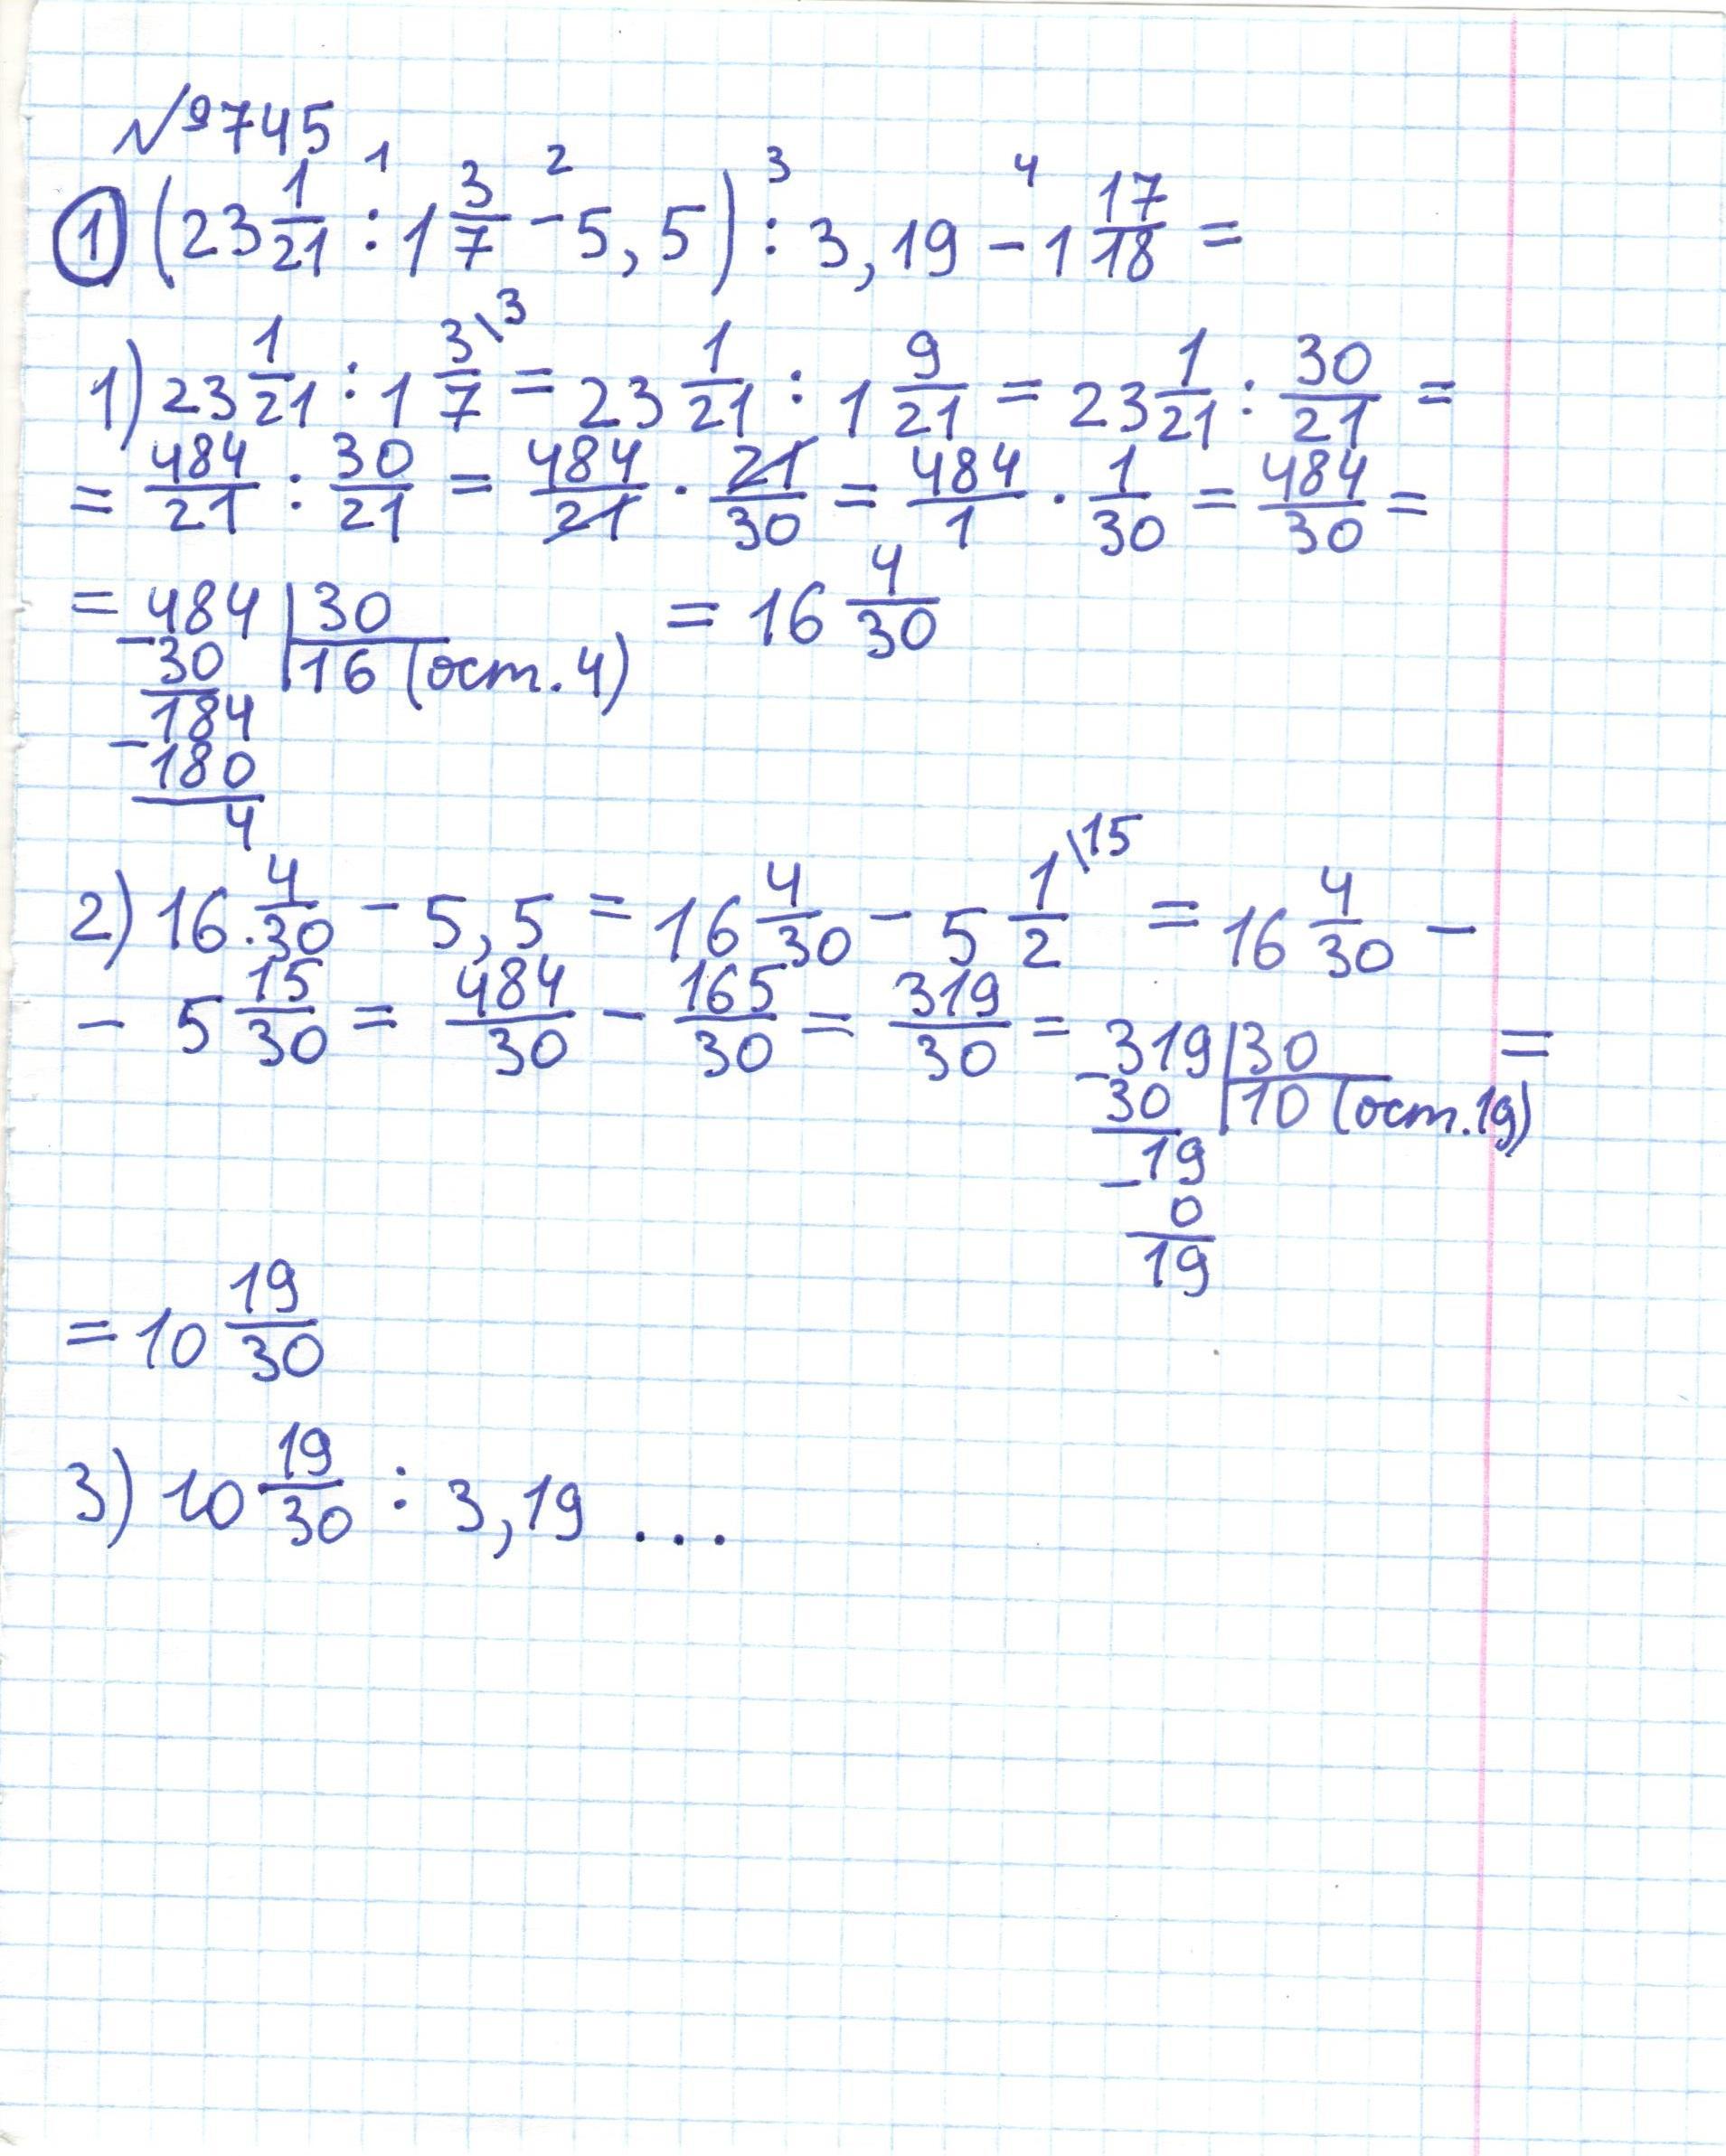 №745
① (23 1/21 :¹ 1 3/7 -² 5,5) :³ 3,19 -⁴ 1 17/18 =
1) 23 1/21 : 1 3/7\3 = 23 1/21 : 1 9/21 = 23 1/21 : 30/21 =
= 484/21 : 30/21 = 484/21 · 21/30 = 484/1 · 1/30 = 484/30 =
= 484 | 30 = 16 4/30
- 30 | 16 (ост. 4)
- 184
180
4
2) 16 4/30 - 5,5 = 16 4/30 - 5 1/2\15 = 16 4/30 -
- 5 15/30 = 484/30 - 165/30 = 319/30 = 319 | 30 =
- 30 | 10 (ост. 19)
- 19
0
19
= 10 19/30
3) 10 19/30 : 3,19 ...